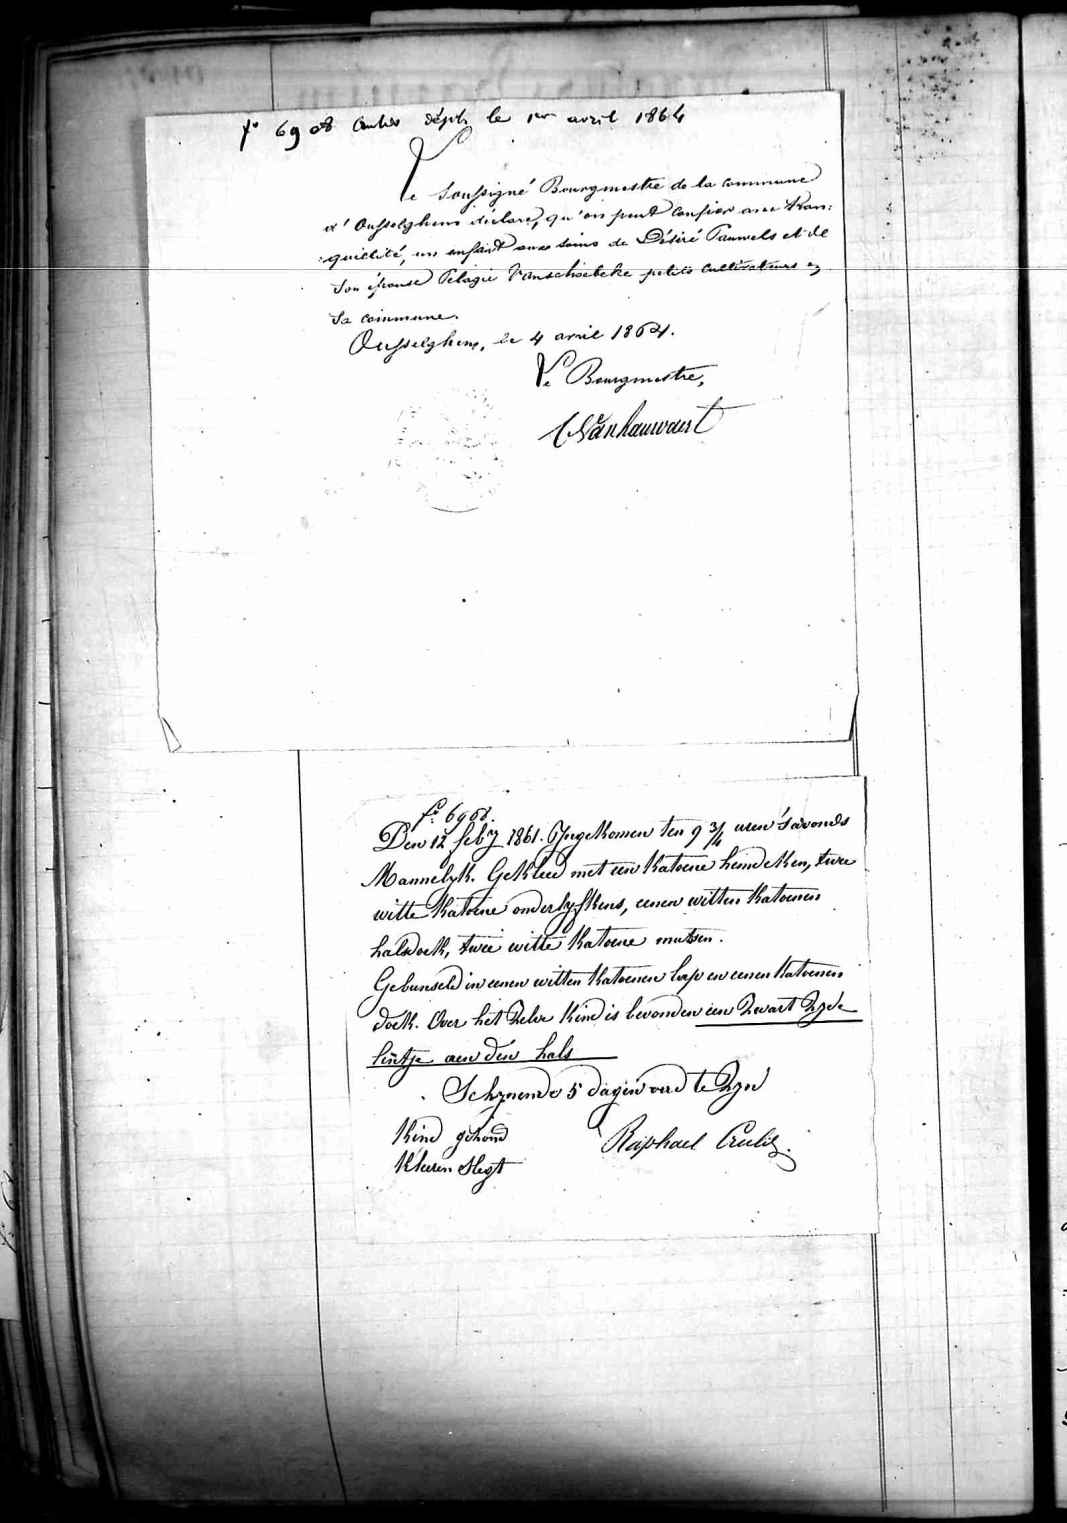 fo 6908 Crulis dépt. le 1er avril 1864
Le Soussigné Bourgmestre de la commune
d'Ousselghem déclare, qu'on peut confier avec tran:
:quillité, un enfant aux soins de Désiré Pauwels et de
Son épouse Pélagie Vanschoebeke petits cultivateurs en
Sa commune.
Ousselghem, le 4 avril 1864.
Le Bourgmestre,
Vanhauwaert
fo 6908.
Den 12 feby 1861. Yngekomen ten 9 3/4 uren 's avonds
Mannelyk. Gekleed met een katoene hemdeken, twee
witte katoene onderlyfkens, eenen witten katoenen
halsdoek, twee witte katoene mutsen.
Gebunseld in eenen witten katoenen lap en eenen katoenen
doek. Over het zelve kind is bevonden een zwart zyde
lintje aen den hals
Schynende 5 dagen oud te zyn
Kind gezond
Kleeren slegt
Raphael Crulis.